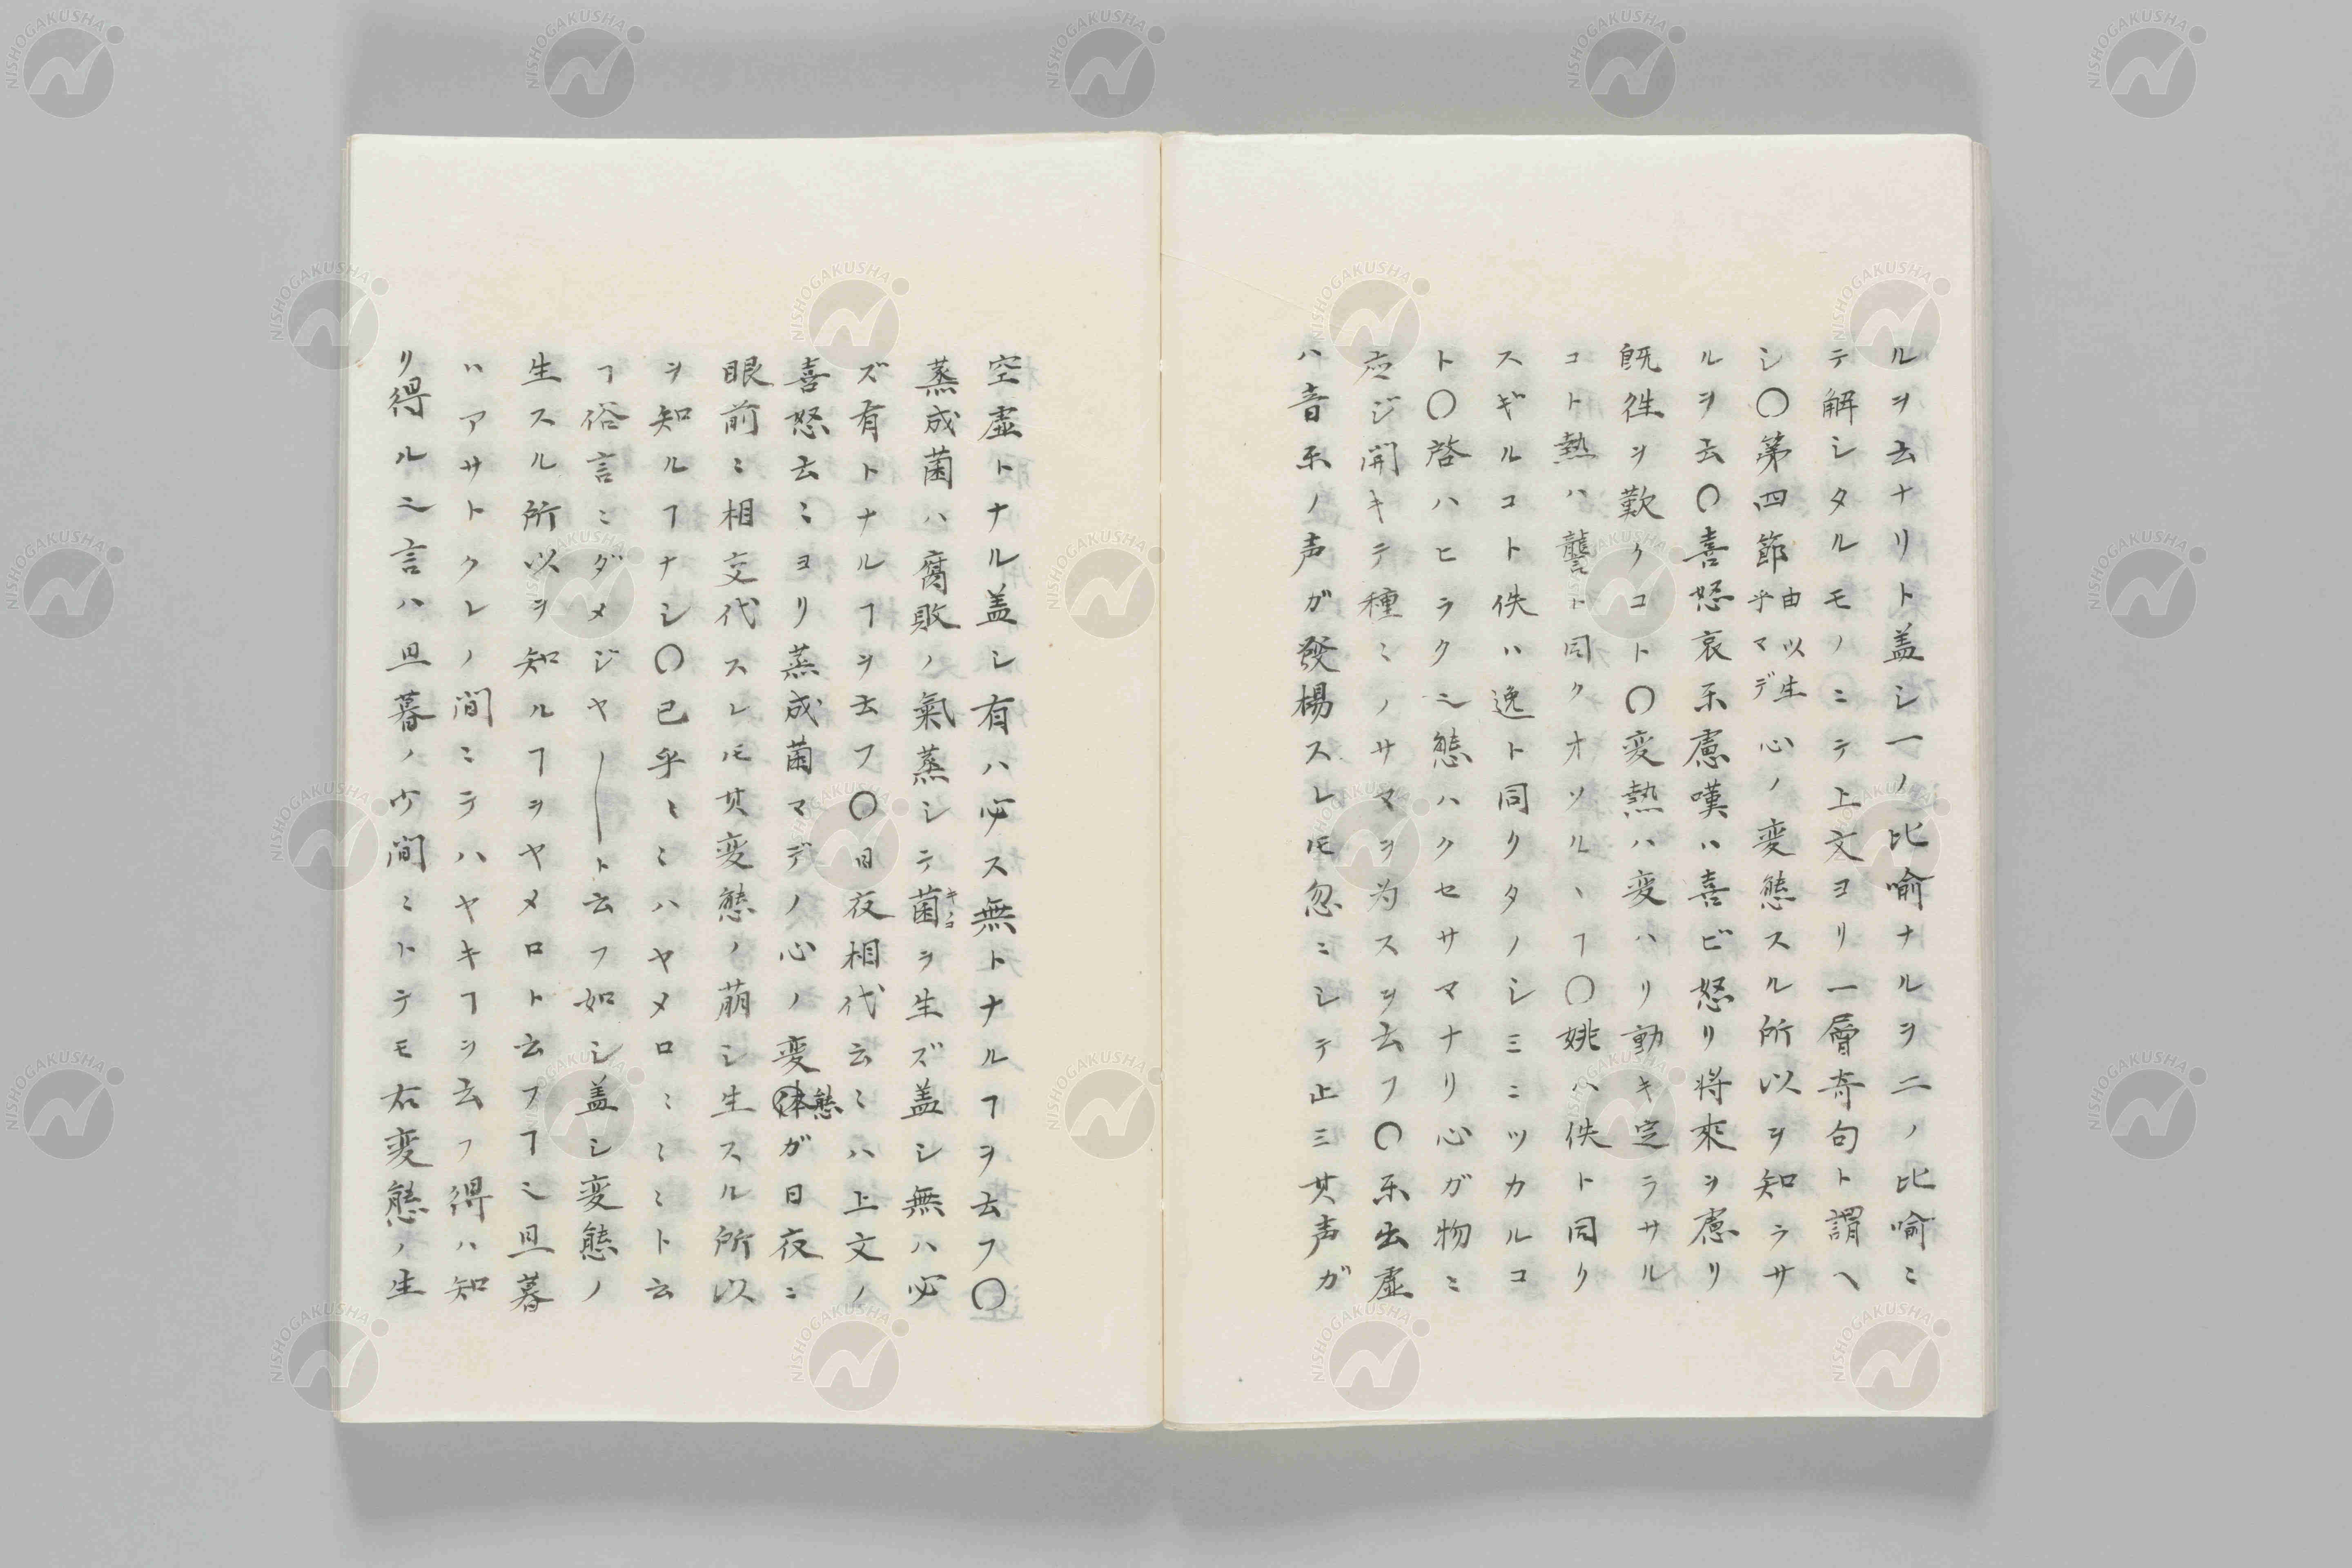 ルヲ云ナリト盖シ一ノ比喻ナルヲ二ノ比喻ニ
テ解シタルモノニテ上文ヨリ一層奇句ト謂ヘ
シ〇第四節由以生乎マデ心ノ変態スル所以ヲ知ラサ
ルヲ云〇喜怒哀乐慮嘆ハ喜ビ怒リ将來ヲ慮リ
既徃ヲ歎クコト〇変熱ハ変ハリ動キ定ラサル
コト熱ハ讋ト同クオソルヽヿ〇姚ハ佚ト同り
スギルコト佚ハ逸ト同クタノシミニツカルコ
ト〇啓ハヒラク㔫態ハクセサマナリ心ガ物ニ
应ジ開キテ種ミノサマヲ为スヲ云フ〇乐出虚
ハ音乐ノ声ガ發楊スレ𪜈忽ニシテ止ミ其声ガ
空虚トナル盖シ有ハ必ス無トナルヿヲ云フ〇
蒸成菌ハ腐敗ノ氣蒸シテ菌キノコヲ生ズ盖シ無ハ必
ズ有トナルヿヲ云フ〇日夜相代云ミハ上文ノ
喜怒云ミヨリ蒸成菌マデノ心ノ変態ガ日夜ニ
眼前ニ相交代スレ𪜈其変態ノ萠シ生スル所以
ヲ知ルヿナシ〇已乎ミミハヤメロミミミト云
ヿ俗言ニダメジヤ――ト云フ如シ盖シ変態ノ
生スル所以ヲ知ルヿヲヤメロト云フヿ㔫旦暮
ハアサトクレノ間ニテハヤキヿヲ云フ得ハ知
リ得ル㔫言ハ旦暮ノ少間ニトテモ右変態ノ生